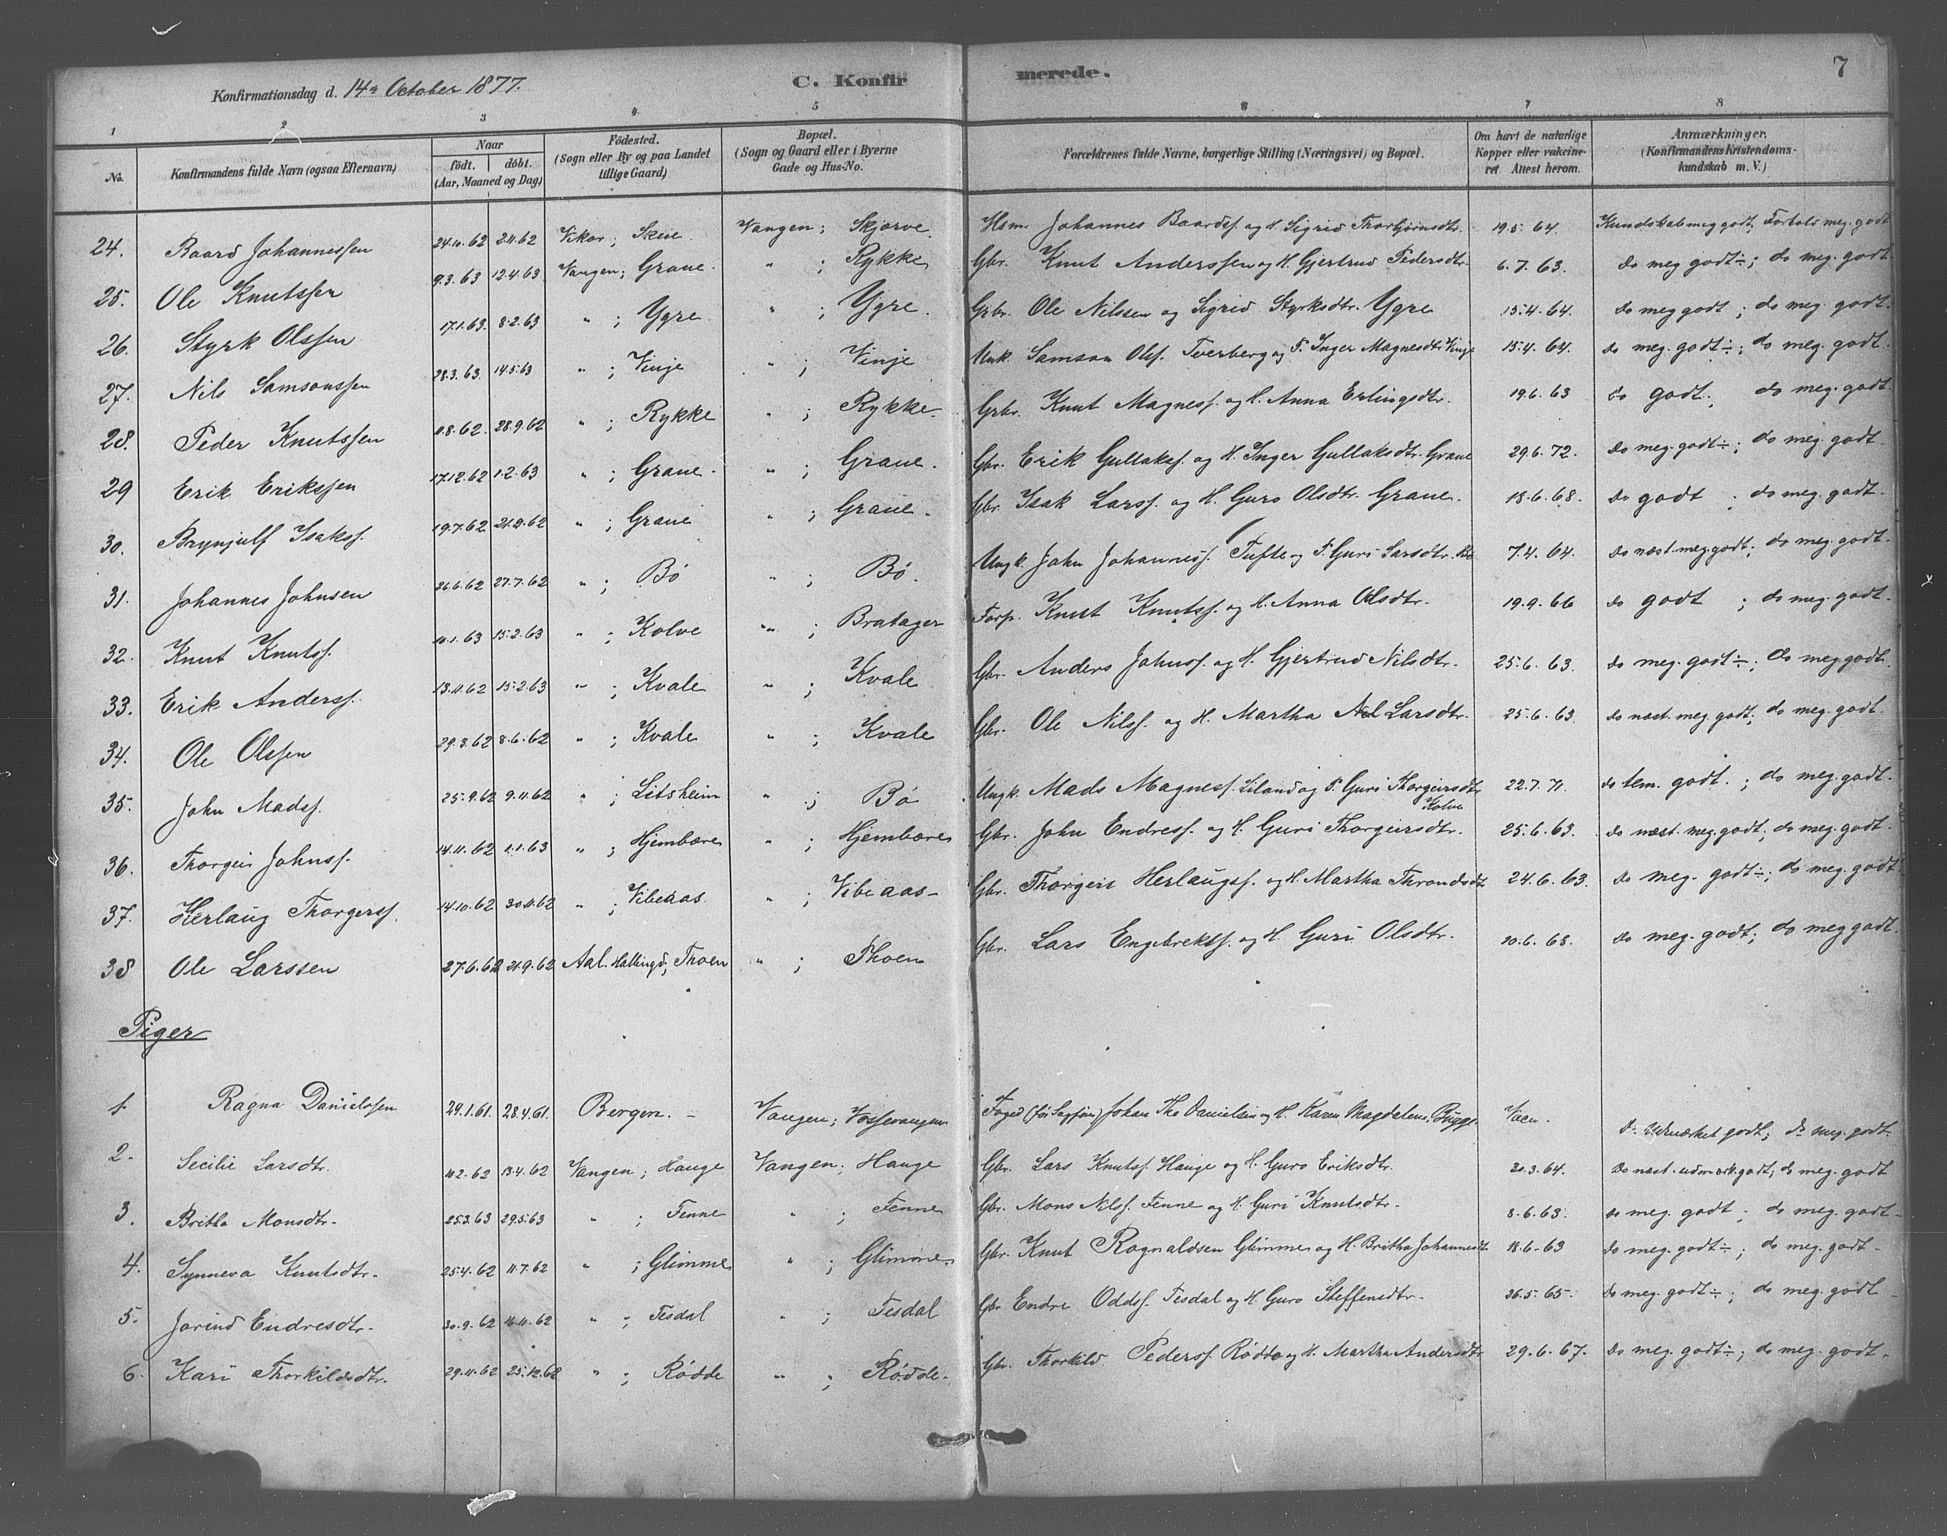 7
Konfirmationsdag d. 14de October 1877.
C. Konfirmerede.
1 2 3 4 5 6 7 8
No. Konfirmandens fulde Navn (ogsaa Efternavn) Naar født. døbt. (Aar, Maaned og Dag) Fødested. (Sogn eller By og paa Landet tillige Gaard) Bopæl. (Sogn og Gaard eller i Byerne Gade og Hus-No. Forældrenes fulde Navne, borgerlige Stilling (Næringsvei) og Bopæl. Om havt de naturlige Kopper eller vakcineret Attest herom. Anmærkninger. (Konfirmandens Kristendomskundskab m. V.)
24. Baard Johannessen 24.10.62 2.11.62 Vikør; Skeie. Vangen; Skjerve. Hsm. Johannes Baardsf. og H. Sigrid Thorbjørnsdtr. 19.5.64. Kundskab meg godt; Forhold meg. godt
25. Ole Knutssen 9.3.63 12.4.63 Vangen; Graue. " ; Rykke Gbr. Knut Anderssen og H. Gjertrud Pedersdtr. 6.7.63. do meg godt÷; do meg. godt.
26. Styrk Olssen 17.1.63 8.2.63 " ; Ygre " ; Ygre. Grbr. Ole Nilssen og Sigrid Styrksdtr. Ygre 15.4.64. do meg godt ; do meg. godt.
27. Nils Samsonssen 28.3.63. 14.5.63 " ; Vinje " ; Vinje Unk. Samson Olsf. Tverberg og P. Inger Magnesdtr. Vinje 15.4.64 do meg. godt÷; do meg. godt.
28. Peder Knutssen 11.8.62. 28.9.62 " ; Rykke " ; Rykke Grbr. Knut Magnesf. og H. Anna Erlingsdtr. 19.6.63 do godt. ; do meg. godt.
29 Erik Erikssen 17.12.62 1.2.63 " ; Graue. " ; Graue. Gbr. Erik Gullaksf. og H. Inger Gullaksdtr. Graue 29.6.72. do meg. godt÷; do meg. godt.
30. Brynjulf Isaksf. 19.7.62 21.9.62 " ; Graue " ; Graue. Gbr. Isak Larsf. og H. Guro Olsdtr. Graue. 18.6.68. do godt ; do meg. godt.
31. Johannes Johnsen 26.6.62 27.7.62 " ; Bø " ; Bø. Ungk. John Johannesf. Tufte og P. Guri Larsdtr. Bø 7.4.64. do næst. meg. godt; do meg. godt.
32. Knut Knutsf. 10.1.63 15.2.63 " ; Kolve " ; Bratager Forp. Knut Knutsf. og H. Anna Olsdtr. 19.9.66 do godt ; do meg. godt.
33. Erik Andersf. 13.11.62 15.2.63 " ; Kvale " ; Kvale Gbr. Anders Johnsf. og H. Gjertrud Nilsdtr. 25.6.63. do meg. godt÷; do meg godt.
34. Ole Olssen 29.3.62 8.6.62 " ; Kvale " ; Kvale Gbr. Ole Nilsf. og H. Martha Larsdtr. 25.6.63. do næst. meg. godt; do meg. godt.
35. John Madsf. 25.9.62 9.11.62 " ; Litsheim " ; Bø Ungk. Mads Magnesf. Liland og P. Guri Thorgiersdtr Kolve 22.7.71. do tem. godt. ; do meg. godt.
36. Thorgeir Johnsf. 14.11.62 1.1.63 " ; Hjembære " ; Hjembære Gbr. John Endresf. og H. Guri Thorgiersdtr. 25.6.63. do næst. meg. godt; do meg. godt.
37. Herlaug Thorgersf. 14.10.62 30.11.62 " ; Vibeaas. " ; Vibeaas- Gbr. Thorgeir Herlaugsf. og H. Martha Throndsdtr 24.6.63. do meg. godt÷; do meg. godt.
38 Ole Larssen 27.6.62 21.9.62 Aal. Hallingd; Thoen " ; Thoen Gbr. Lars Engebrektsf. og H. Guri Olsdtr. 20.6.68. do meg. godt; do meg godt.
Piger
1. Ragna Danielssen 29.1.61. 28.4.61. Bergen. - Vangen; Vossevangen Foged Johan Danielsen og H. Karen Magdalene Bugge. Vacc. do udmærket godt; do meg. godt.
2. Secilie Larsdtr. 11.2.62 13.4.62 Vangen; Hauge Vangen; Hauge Gbr. Lars Knutsf. Hauge og H. Guro Eriksdtr. 20.3.64. do næst. udmærk. godt; do meg. godt
3. Britha Monsdtr. 25.3.63 29.5.63 " ; Tenne " ; Tenne Gbr. Mons Nilsf. Tenne og H. Guri Knutsdtr. 8.6.63. do meg. godt ; do meg. godt-
4. Synneva Knutsdtr. 25.4.62 11.7.62 " ; Glimme " ; Glimme Gbr. Knut Ragnaldsen Glimme og H. Britha Johannesdtr. 18.6.63 do meg. godt÷; do meg. godt-
5. Jorind Endresdtr. 30.9.62 16.11.62 " ; Tesdal " ; Tesdal Gbr Endre Oddsf. Tesdal og H. Guro Steffensdtr. 26.5.65. do meg. godt÷; do meg. godt-
6. Kari Thorkildsdtr. 29.11.62 25.12.62 " ; Rødde " ; Rødde. Gbr. Thorkild Pedersf. Rødde og H. Martha Andersdtr 29.6.67. do meg. godt÷; do meg. godt-